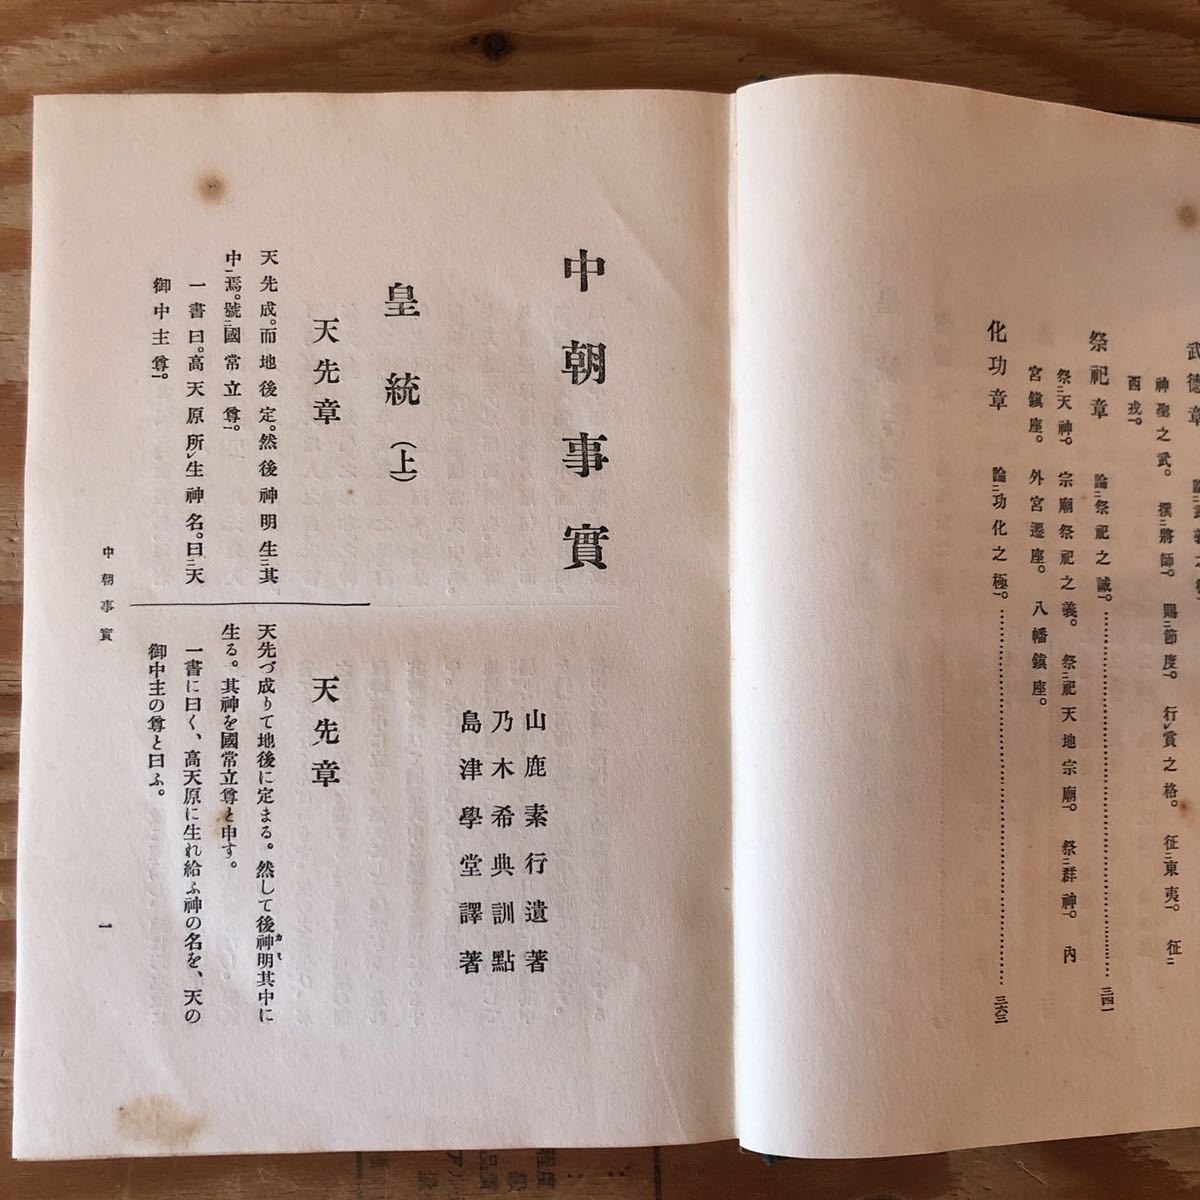 武德章
論武義之德
神聖之武。撰二將師一。賜二節度一。行レ賞之格。征二東夷一。征二
西戎一。
祭祀章 論二祭祀之誠一。……三四一
祭二天神一。宗廟祭祀之義。祭二祀天地宗廟一。祭二群神一。內
宮鎭座。外宮遷座。八幡鎭座。
化功章 論二功化之極一。……三六三
中朝事實
山鹿素行遺著
乃木希典訓點
島津學堂譯著
皇統(上)
天先章
天先成。而地後定。然後神明生二其
中一焉。號二國常立尊一。
一書曰。高天原所レ生神名。曰二天
御中主尊一。
天先章
天先づ成りて地後に定まる。然して後神明其中に
カミ
生る。其神を國常立尊と申す。
一書に曰く、高天原に生れ給ふ神の名を、天の
御中主の尊と曰ふ。
中朝事實
一